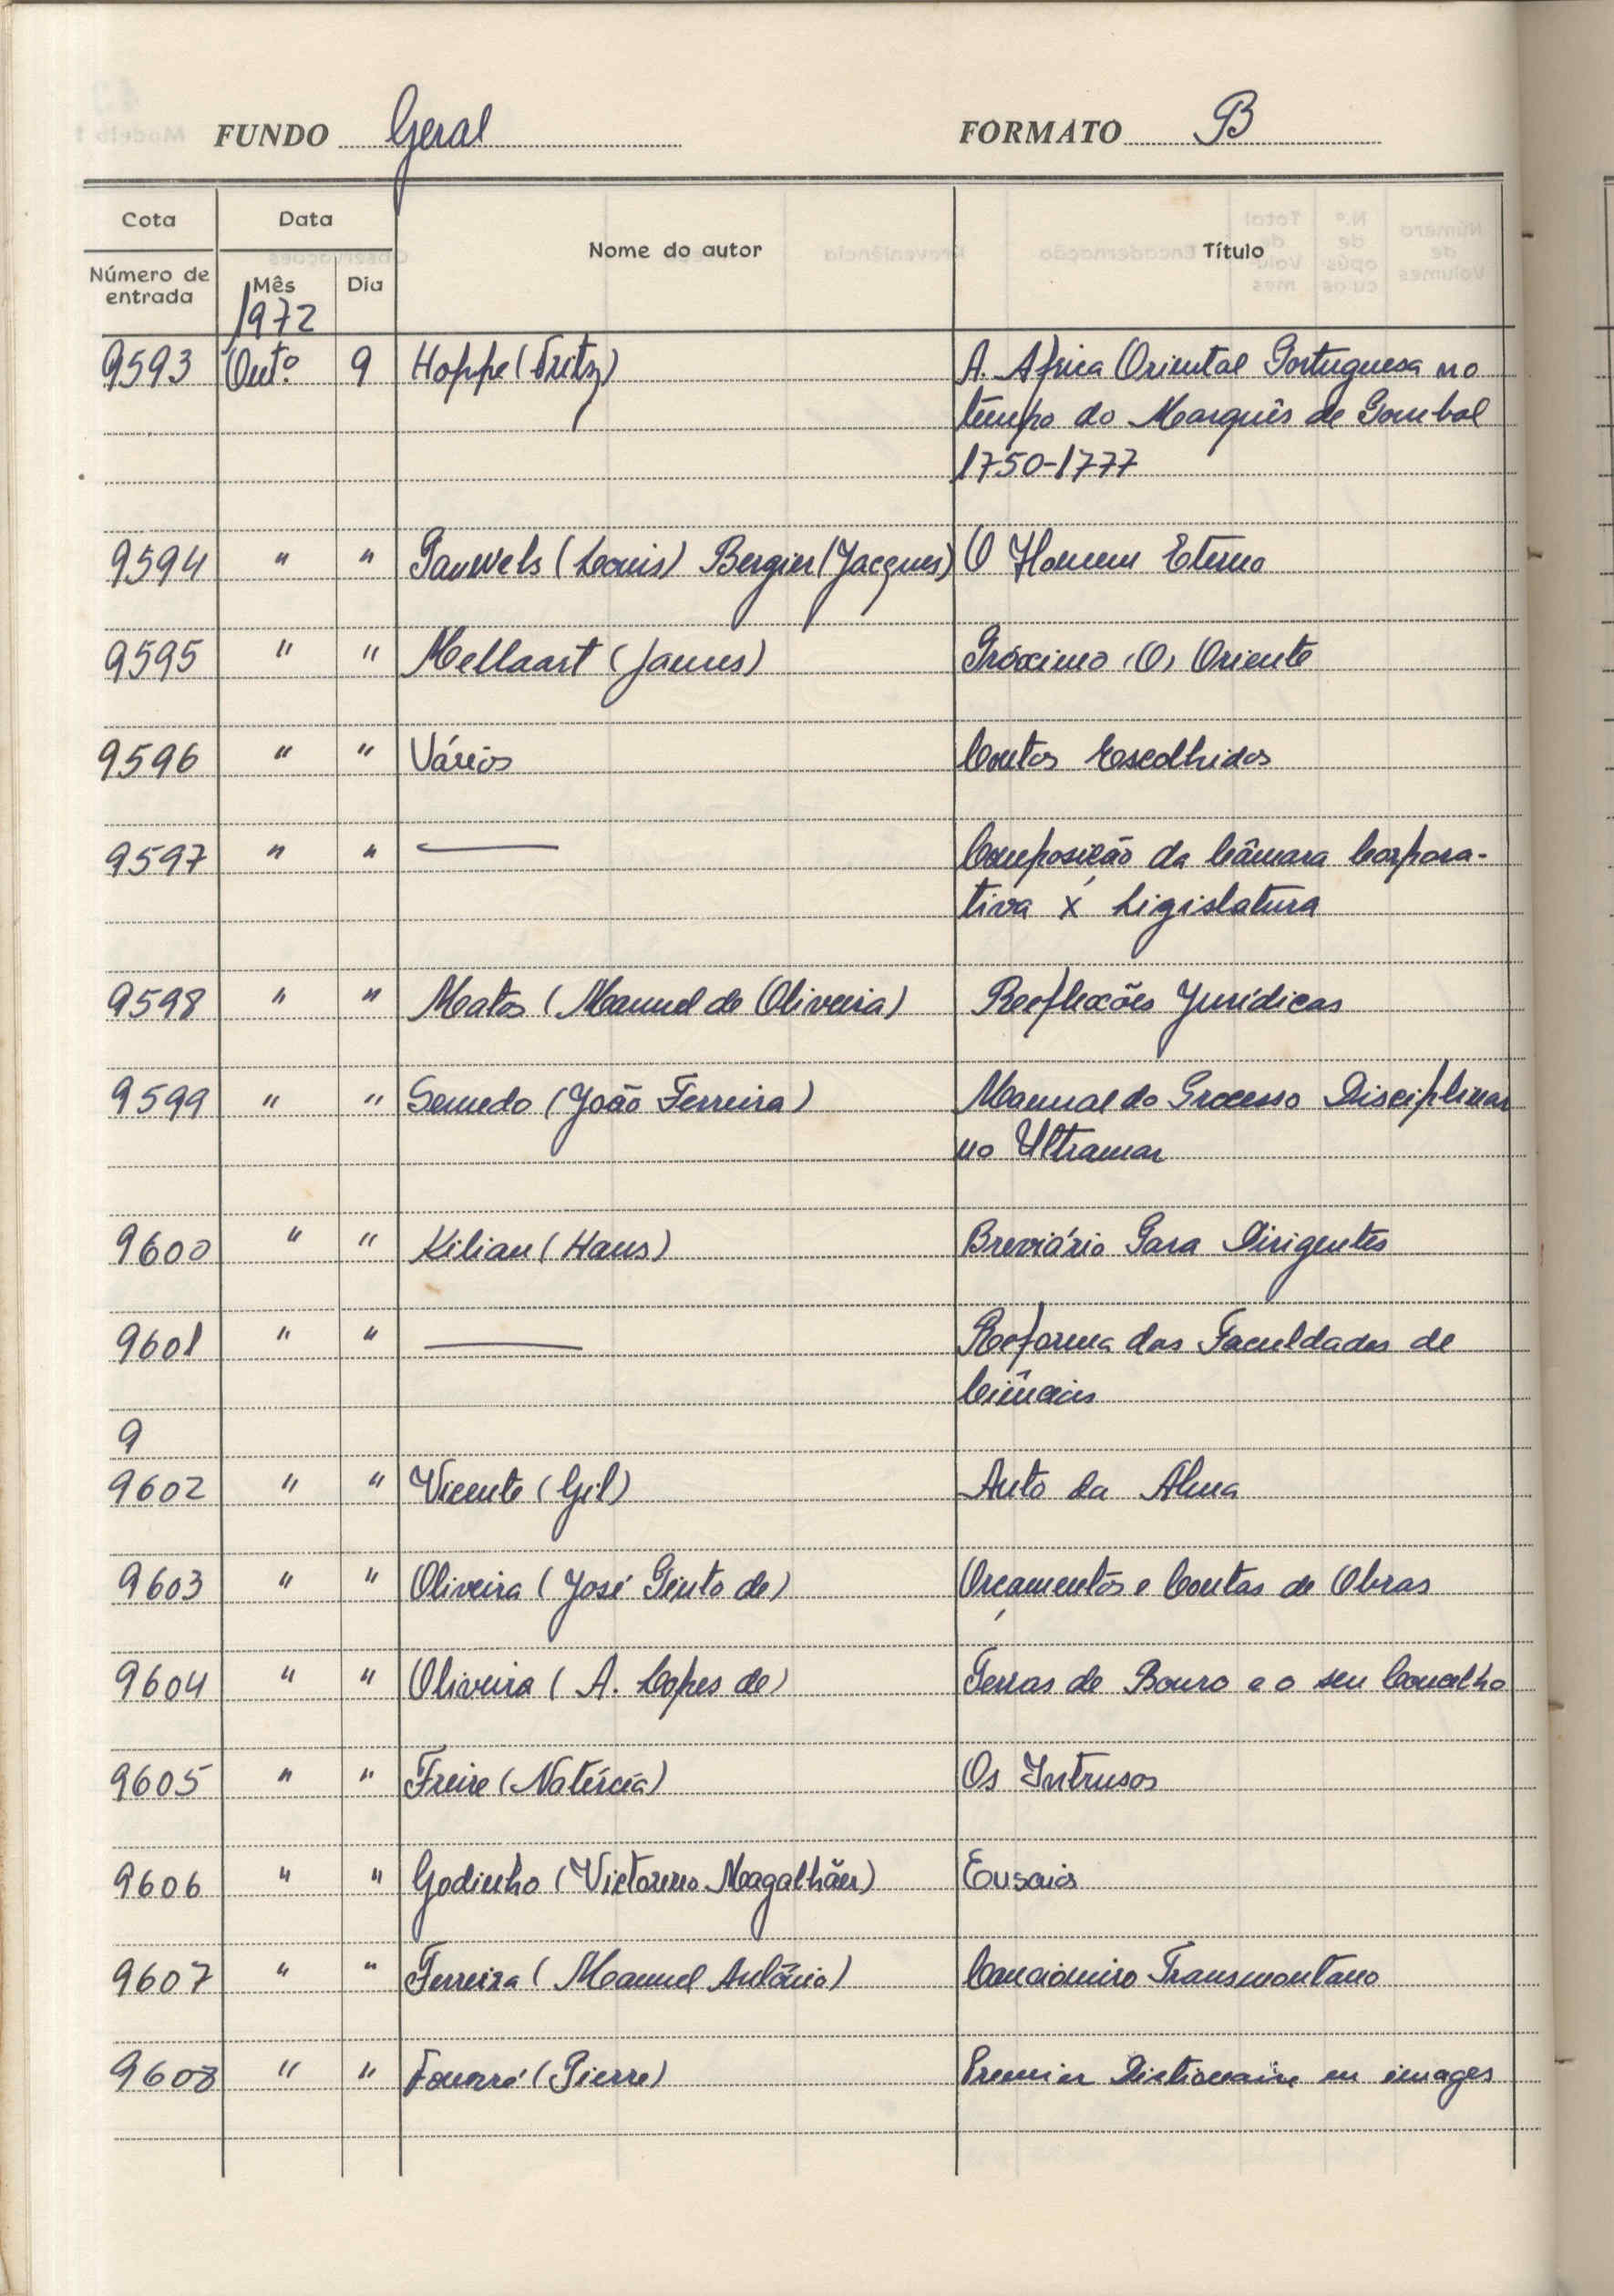 FUNDO Geral FORMATO B
Cota Data Nome do autor Título
Número de entrada Mês Dia
1972
9593 Outº. 9 Hoppe (Fritz) A. Africa Oriental Portuguesa no
tempo do Marquês de Pombal
1750-1777
9594 " " Pauwels (Louis) Bergier (Jacques) O Homem Eterno
9595 " " Mellaart (James) Próximo (O) Oriente
9596 " " Vários Contos Escolhidos
9597 " " — Composição da Câmara Corpora-
tiva X Ligislatura
9598 " " Matos (Manuel de Oliveira) Reflexões Jurídicas
9599 " " Semedo (João Ferreira) Manual do Processo Disciplinar
no Ultramar
9600 " " Kilian (Hans) Breviário Para Dirigentes
9601 " " — Reforma das Faculdades de
Ciências
9
9602 " " Vicente (Gil) Auto da Alma
9603 " " Oliveira (José Pinto de) Orçamentos e Contas de Obras
9604 " " Oliveira (A. Lopes de) Terras de Bouro e o seu Concelho
9605 " " Freire (Natércia) Os Intrusos
9606 " " Godinho (Victorino Magalhães) Ensaios
9607 " " Ferreira (Manuel António) Cancioneiro Transmontano
9608 " " Fourré (Pierre) Premier Dictionaire en images